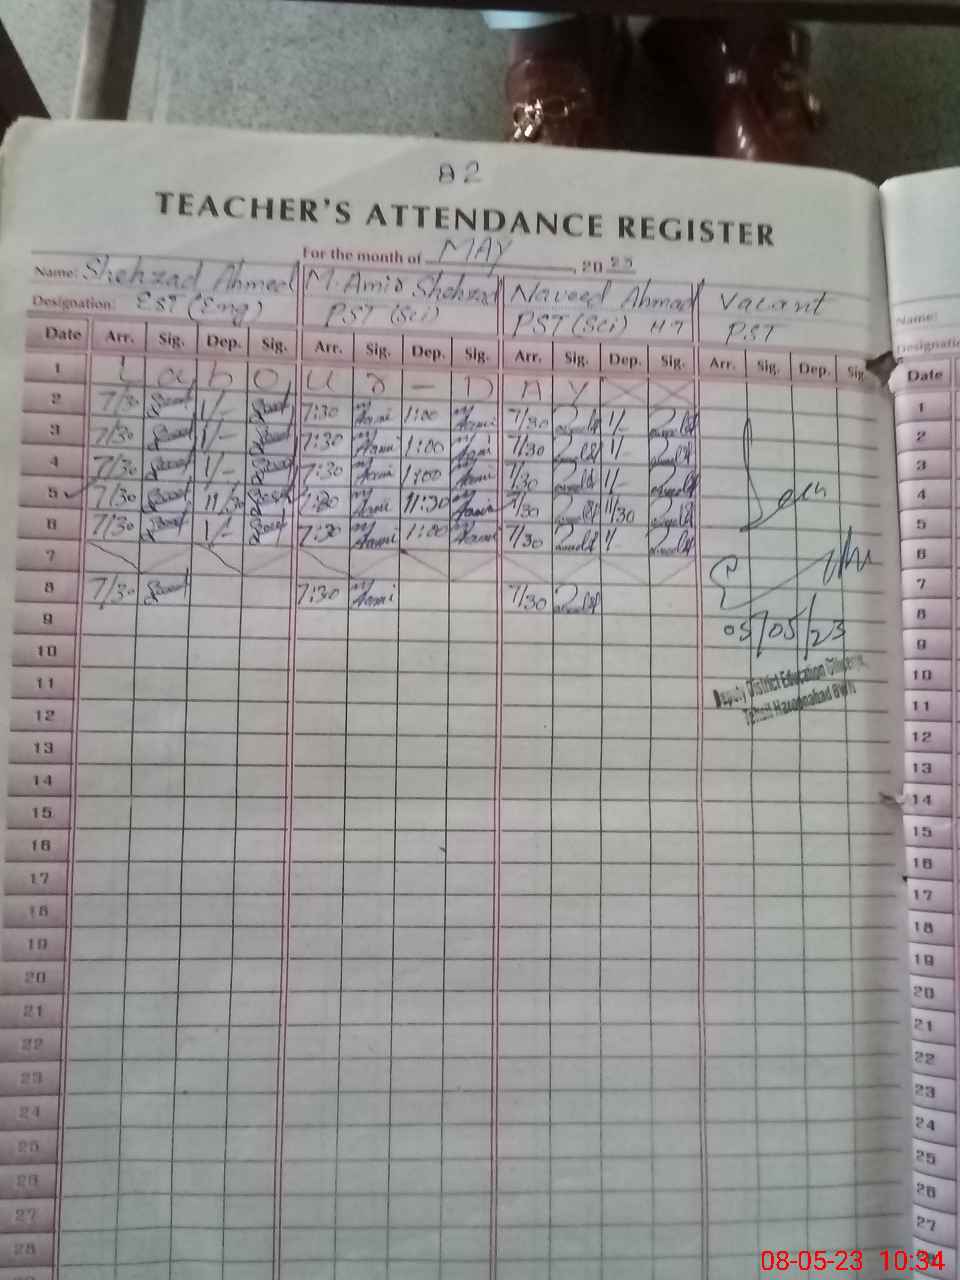 82
TEACHER'S ATTENDANCE REGISTER
For the month of MAY, 2023
Name: Shehzad Ahmed M. Amir Shehzad Naveed Ahmad Vacant
Designation: EST (Eng) PST (Sci) PST (Sci) HT PST
Date Arr. Sig. Dep. Sig. Arr. Sig. Dep. Sig. Arr. Sig. Dep. Sig. Arr. Sig. Dep. Sig.
1 L a b o u r - D A Y
2 7/30 1/- 7:30 1:00 7/30 1/-
3 7/30 1/- 7:30 1:00 7/30 1/-
4 7/30 1/- 7:30 1:00 7/30 1/-
5 7/30 11/30 7:30 11:30 7/30 11/30
6 7/30 1/- 7:30 1:00 7/30 1/-
7
8 7/30 7:30 7/30
Seen
05/05/23
Deputy District Education Officer
Tehsil Haroonabad BWN
9
10
11
12
13
14
15
16
17
18
19
20
21
22
23
24
25
26
27
28
Name:
Date
1
2
3
4
5
6
7
8
9
10
11
12
13
14
15
16
17
18
19
20
21
22
23
24
25
26
27
08-05-23 10:34